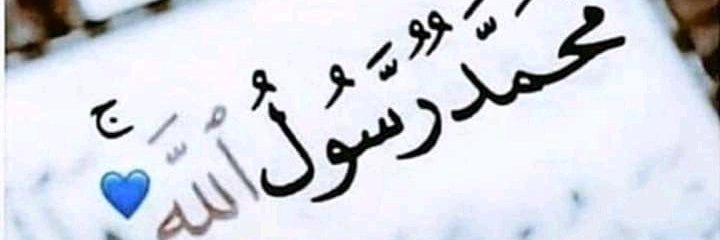 مُّحَمَّدٌ رَّسُولُ ٱللَّهِ ۚ 💙